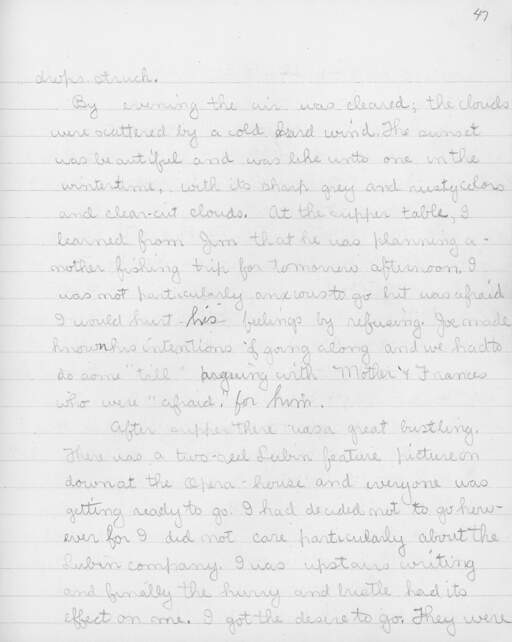 47
drops struck.
By evening the air was cleared; the clouds
were scattered by a cold hard wind. The sunset
was beautiful and was like unto one in the
wintertime, with its sharp grey and rusty colors
and clear-cut clouds. At the supper table, I
learned from Jim that he was planning a-
nother fishing trip for tomorrow afternoon. I
was not particularly anxious to go but was afraid
I would hurt his feelings by refusing. Joe made
known his intentions of going along and we had to
do some "tall" arguing with Mother & Frances
who were "afraid" for him.
After supper there was a great bustling.
There was a two-reel Lubin feature picture on
down at the Opera-house and everyone was
getting ready to go. I had decided not to go how-
ever for I did not care particularly about the
Lubin company. I was upstairs writing
and finally the hurry and bustle had its
effect on me. I got the desire to go. They were